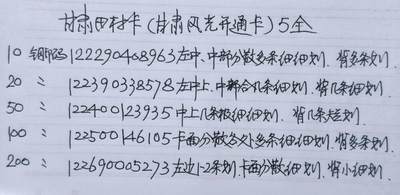 甘肃田村卡(甘肃风光开通卡)5全
10 钢码122290408963左中、中部分散多条细细划、背多条划.
20 〃 122390338578左中上、中部合几条细划、背几条细划.
50 〃 122400123935中上几条极细细划、背几条短划.
100 〃 122500146105卡面分散各处多条细细划、背多条划.
200 〃 122690005273左边1-2条划、卡面分散细划、背小细划.